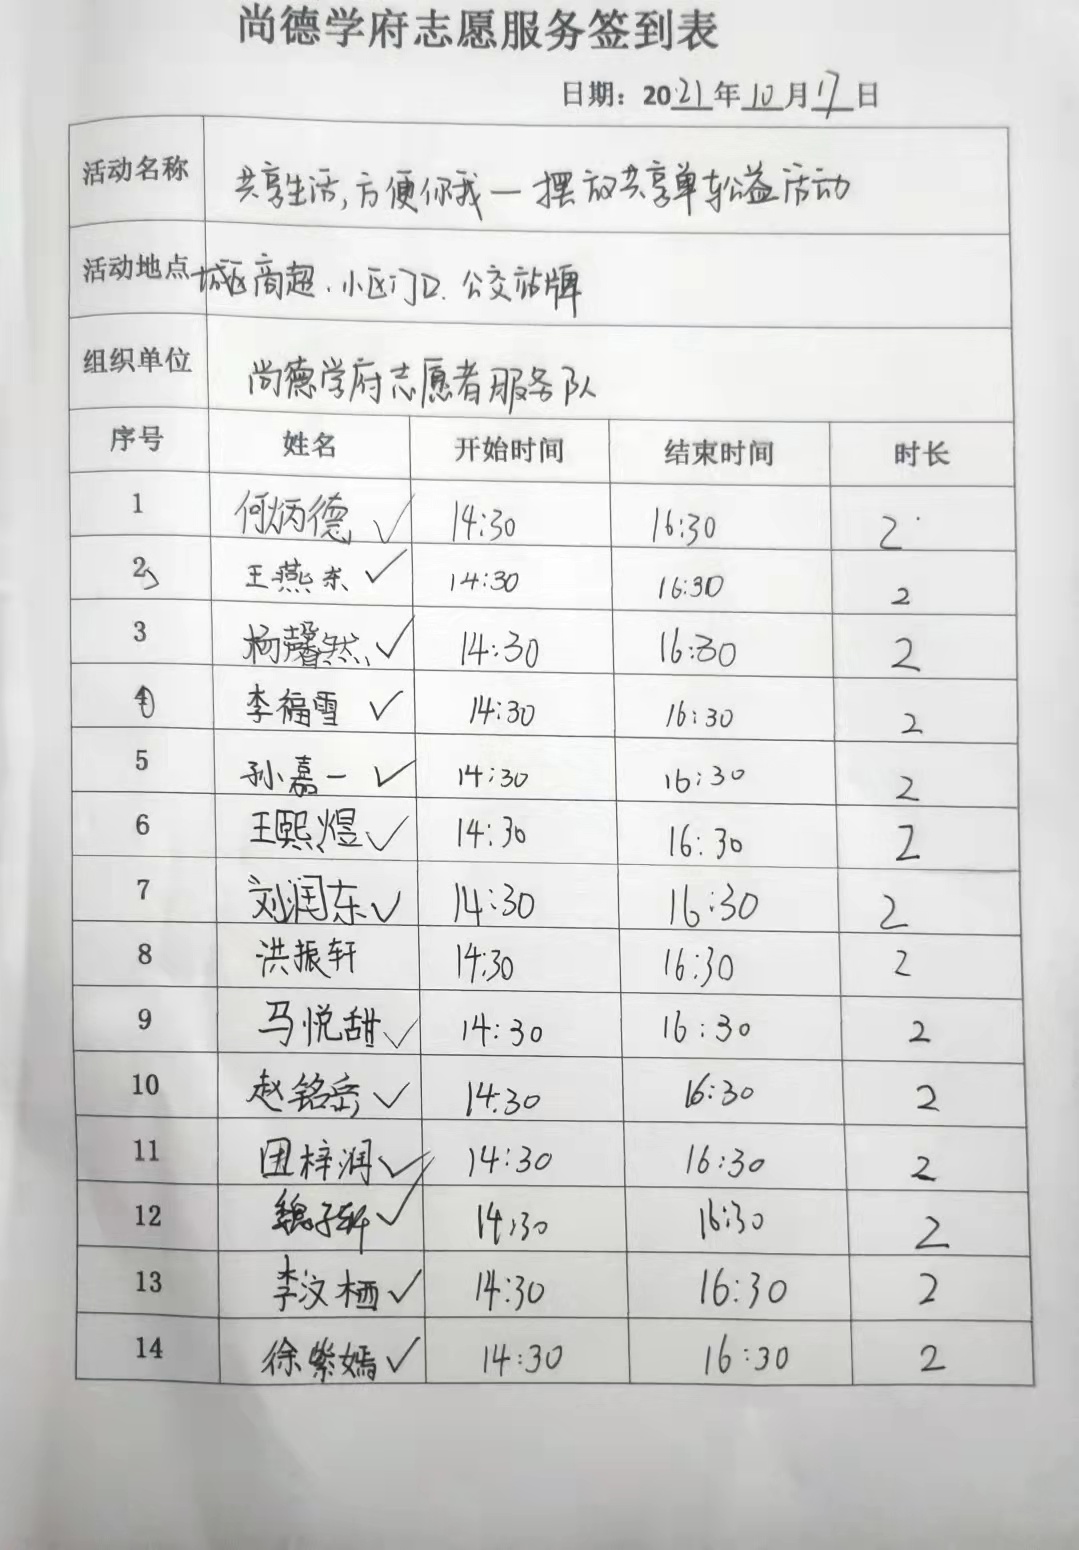 尚德学府志愿服务签到表
日期：2021年10月17日
活动名称 共享生活,方便你我一摆放共享单车公益活动
活动地点 城区商超.小区门口.公交站牌
组织单位 尚德学府志愿者服务队
序号 姓名 开始时间 结束时间 时长
1 何炳德 ✓ 14:30 16:30 2
2 王燕东 ✓ 14:30 16:30 2
3 杨馨然 ✓ 14:30 16:30 2
4 李福雪 ✓ 14:30 16:30 2
5 孙嘉一 ✓ 14:30 16:30 2
6 王熙煜 ✓ 14:30 16:30 2
7 刘润东 ✓ 14:30 16:30 2
8 洪振轩 14:30 16:30 2
9 马悦甜 ✓ 14:30 16:30 2
10 赵铭岳 ✓ 14:30 16:30 2
11 田梓润 ✓ 14:30 16:30 2
12 魏子轩 ✓ 14:30 16:30 2
13 李汶栖 ✓ 14:30 16:30 2
14 徐紫嫣 ✓ 14:30 16:30 2